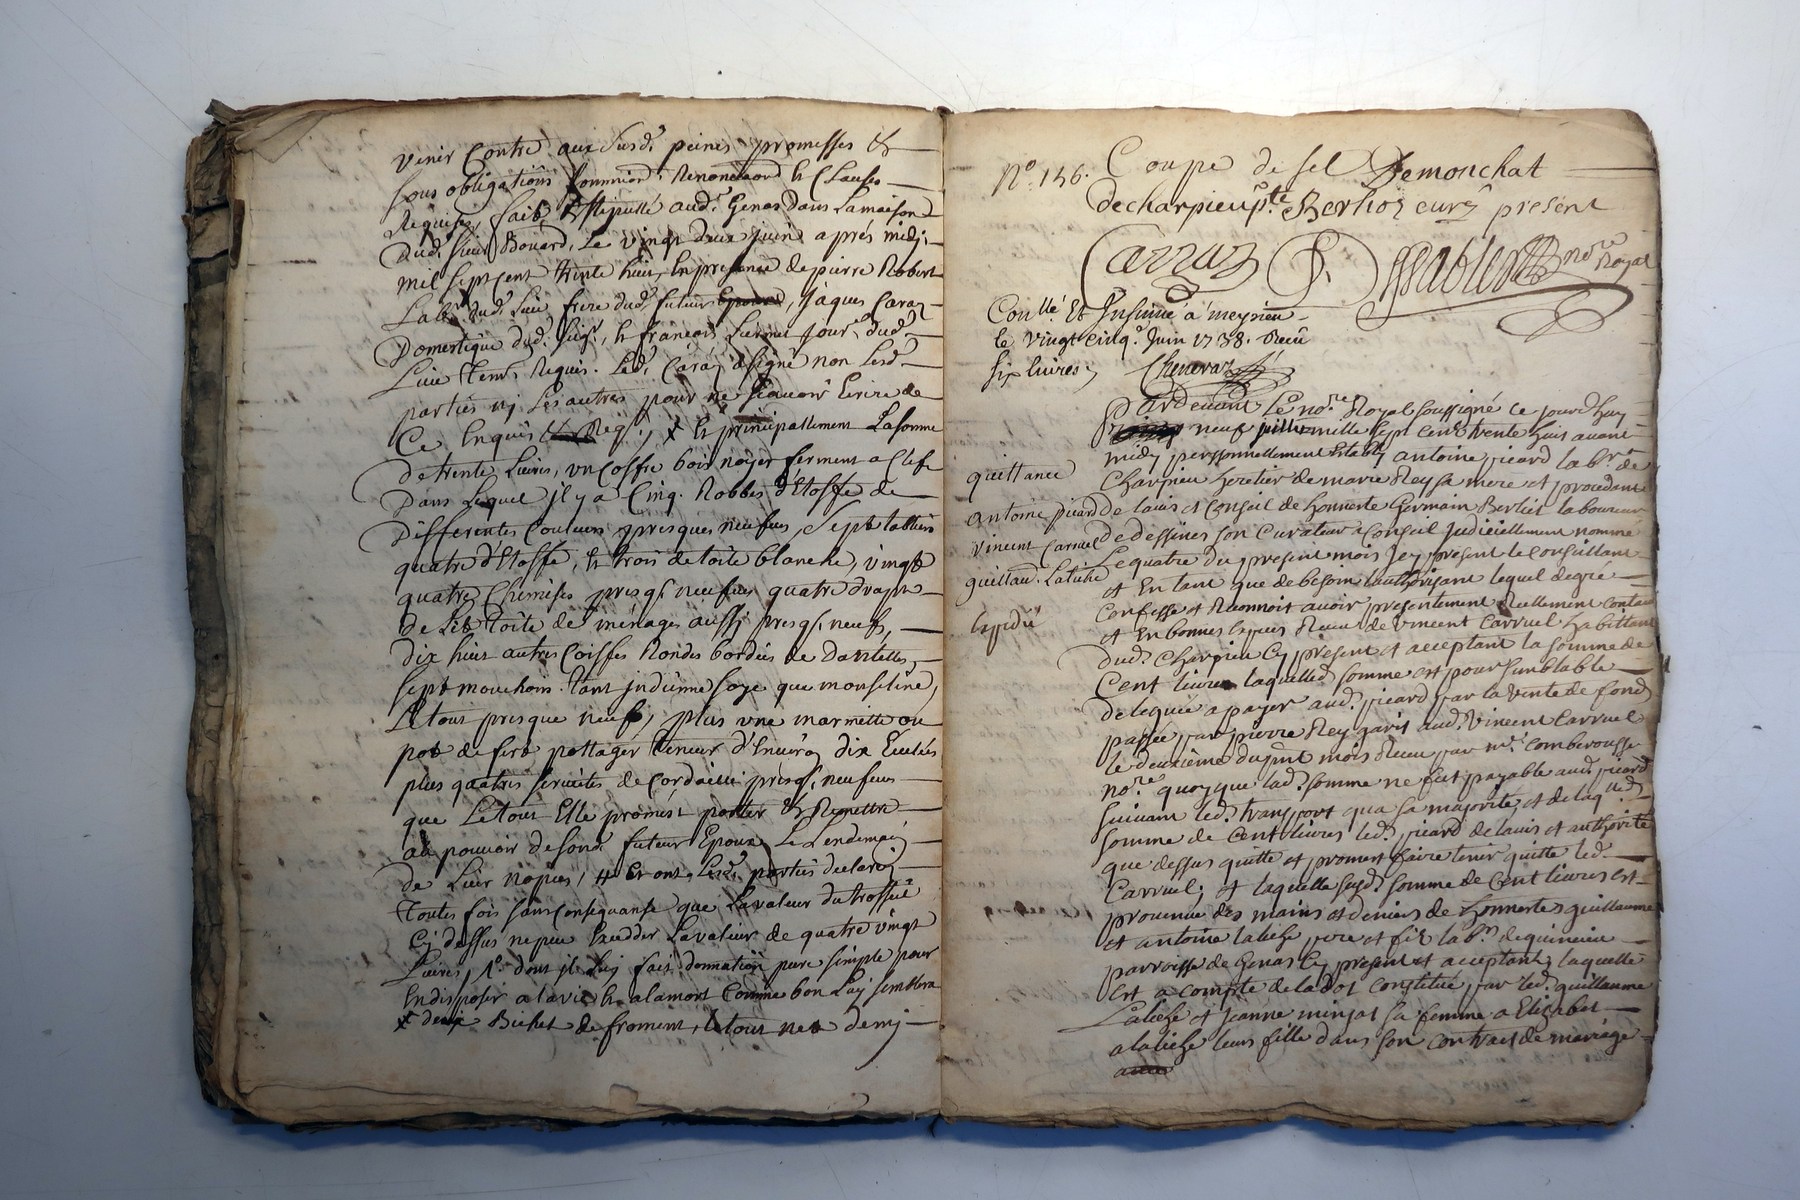 venir Contre aux Susd. peines promesses &
sous obligations Renonciaons & Clauses
Requises, fait & stipullé aud. Genas Dans Lamaison
Dud. sieur Bouard, Le vingt deux juin aprés midj,
mil sept cent trente huit, En presence de pierre Robert
Lab. dud. Lieu, frere dud. futeur, Jâques Caraz
Domestique dud. & françois journ. dud.
Lieu tem. Requis. Led. Caraz a signé non Lesd.
parties nj Les autres pour ne sçavoir Ecrire de
Ce Enquis & Req., & principallement Lasomme
de trente Livres, vn Coffre bois noyer ferment a Clefs
Dans Lequel jl y a Cinq Robbes d'Etoffe de
Differentes Couleurs presques neufves, Sept tabliers
quatre d'Etoffe, & trois de toile blanche, vingt
quatre Chemises presq. neufves quatre draps
de Lit toile de ménages aussj presq. neufs,
dix huit autres Coiffes Rondes bordées de Dantelles,
sept mouchoirs tant jndienne soye que mouseline,
Le tout presque neufs, plus vne marmitte ou
pot de fert pottager teneur d'Enviro dix Ecuelés
plus quatres serviètes de Cordaillié presq. neufves
que Le tout Elle promest porter & Remettre
au pouvoir de son futeur Epoux Le Lendemain
de Leur nopces, Et ont Lesd. parties declaré
toutes fois sans Consequanse que Lavaleur du trossué
Cj dessus ne peu Excedder Lavaleur de quatre vingt
Livres, dont jl Luj fait donnation pure simple pour
En disposer a la vie & a la mort Comme bon Luj semblera
Bichet de froment, le tout demj
N.º 156. Coupe de sel Demonchat
decharpieu pte Berlioz present
Carraz nore Royal
Conllé Et Insinué a meyzieu
le vingt cinq. Juin 1738. Receu
six livres, Chenevaz
Pardevant Le nore. Royal soussigné ce jourd'huy
neuf mille sept cent trente huit avant
midy personnellement Estably antoine picard labr. de
Charpieu heretier de marie Rey sa mere et procedant
de lavis et Conseil de honneste Germain Berliet laboureur
de dessines son Curateur a Conseil Judiciellement nommé
Le quatre du present mois Jcy present le conseillant
et Entant que de besoin lauthorisant lequel degré
Confesse et Reconnoit avoir presentement Reellement contant
et En bonnes Especes Receu de vincent Carruel habittant
dud. Charpieu Cy present et acceptant la somme de
Cent livres laquelle somme est pour semblable
deleguée a payer aud. picard par la vente de fond
passée par pierre Rey aud. Vincent Carruel
le deuxième dupnt mois Receu par mr. comberousse
nore. quoyque lad. somme ne fut payable aud. picard
suivant led. transport qua sa majorité et de laq
somme de Cent livres led. picard de lavis et authorité
que dessus quitte et promest faire tenir quitte led.
Carruel; et laquelle susd. somme de Cent livres est
provenüe des mains et deniers de honnestes guillaume
et antoine labeze pere et fils labrs.
parroisse de Genas Cy present et acceptant, laquelle
Est a compte de la dot constitué par led. guillaume
Labeze et Jeanne minjat sa femme a Elizabet
alabeze leurs fille dans son contract de mariage
quittance
antoine picard
vincent Carruel
guillau.
Expedié